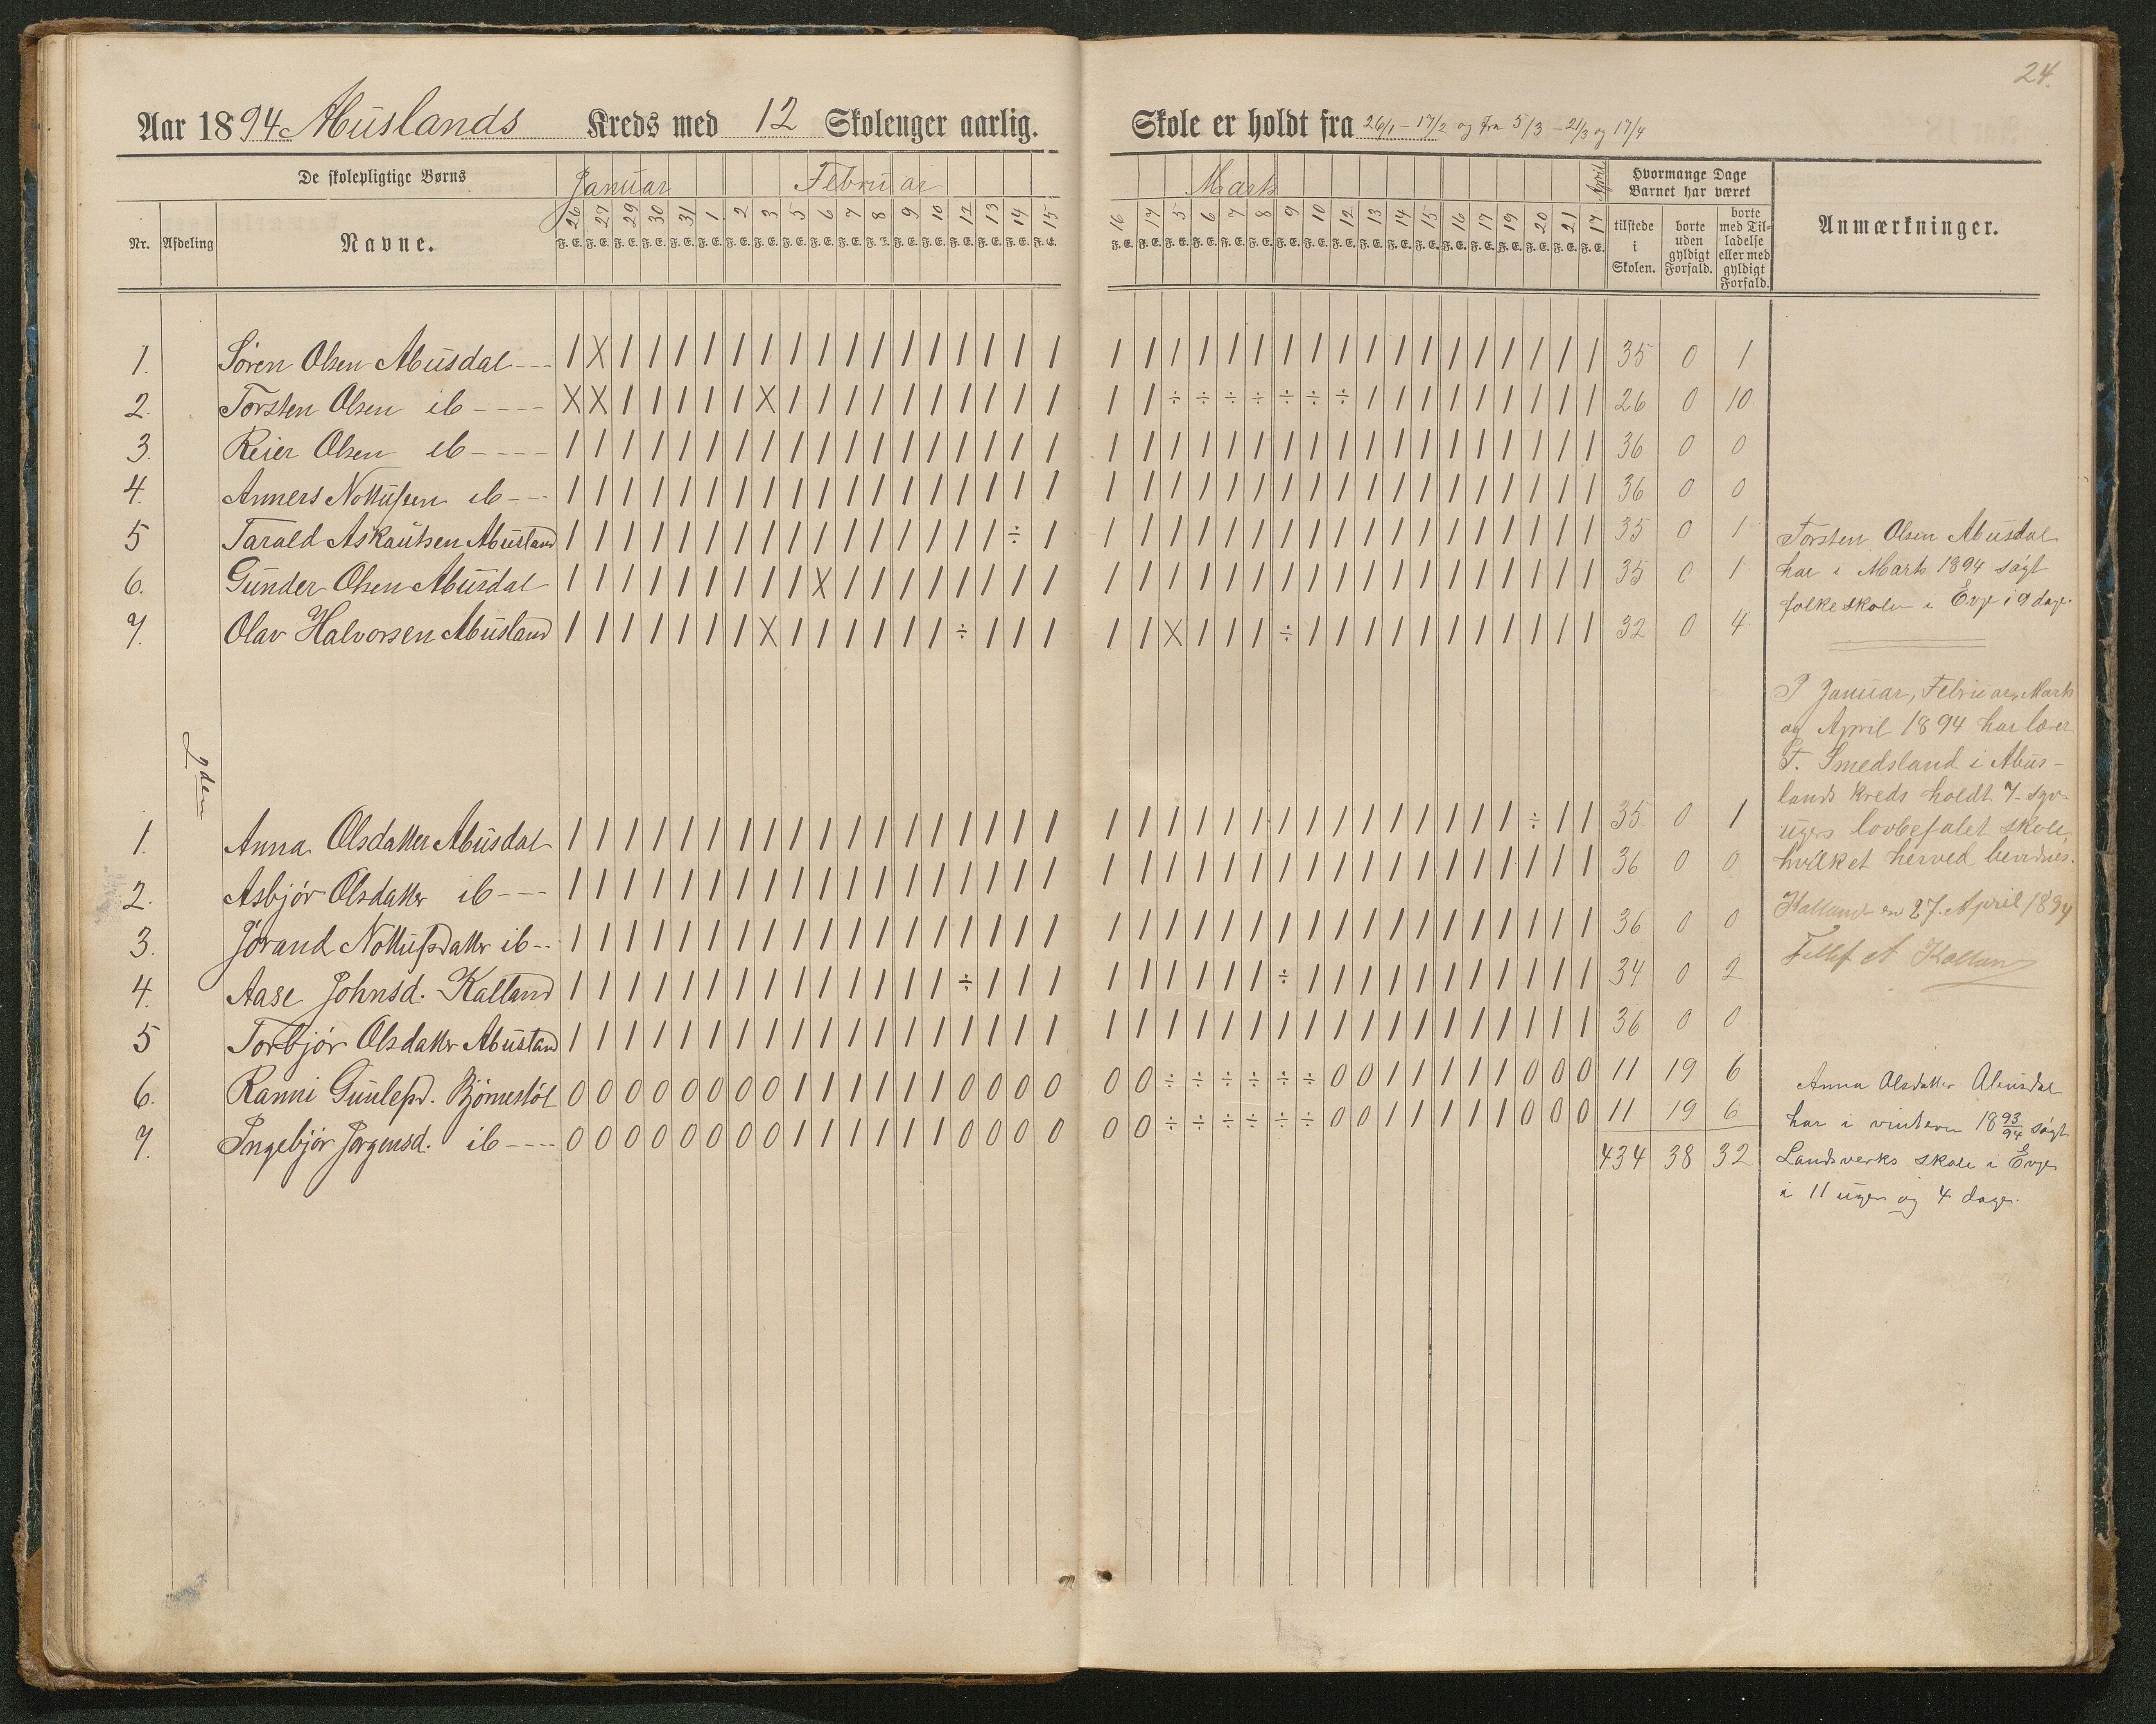 24.
Aar 1894 Abuslands Kreds med 12 Skoleuger aarlig. Skole er holdt fra 26/1 – 17/2 og fra 5/3 – 21/3 og 17/4
De skolepligtige Børns Januar Februar Marts April Hvormange Dage Barnet har været
Nr. Afdeling Navne. 26 27 29 30 31 1 2 3 5 6 7 8 9 10 12 13 14 15 16 17 5 6 7 8 9 10 12 13 14 15 16 17 19 20 21 17 tilstede i Skolen. borte uden gyldigt Forfald. borte med Tilladelse eller med gyldigt Forfald. Anmærkninger.
F. E. F. E. F. E. F. E. F. E. F. E. F. E. F. E. F. E. F. E. F. E. F. E. F. E. F. E. F. E. F. E. F. E. F. E. F. E. F. E. F. E. F. E. F. E. F. E. F. E. F. E. F. E. F. E. F. E. F. E. F. E. F. E. F. E. F. E. F. E. F. E.
1. Søren Olsen Abusdal --- | X | | | | | | | | | | | | | | | | | | | | | | | | | | | | | | | | | | 35 0 1
2. Torsten Olsen ib ---- X X | | | | | X | | | | | | | | | | | | ÷ ÷ ÷ ÷ ÷ ÷ ÷ | | | | | | | | | 26 0 10
3. Reier Olsen ib ---- | | | | | | | | | | | | | | | | | | | | | | | | | | | | | | | | | | | | 36 0 0
4. Anners Nottufsen ib --- | | | | | | | | | | | | | | | | | | | | | | | | | | | | | | | | | | | | 36 0 0
5 Tarald Askautsen Abusland | | | | | | | | | | | | | | | | ÷ | | | | | | | | | | | | | | | | | | | 35 0 1
6. Gunder Olsen Abusdal | | | | | | | | | X | | | | | | | | | | | | | | | | | | | | | | | | | | 35 0 1
7. Olav Halvorsen Abusland | | | | | | | X | | | | | | ÷ | | | | | X | | | ÷ | | | | | | | | | | | 32 0 4
Torsten Olsen Abusdal
har i Marts 1894 søgt
folkeskolen i Evje i 9 dage.
I Januar, Februar, Marts
og April 1894 har lærer
T. Smedsland i Abus-
lands kreds holdt 7- syv-
ugers lovbefalet skole,
hvilket herved bevidnes.
Kalland den 27. April 1894
Tellef A Kalland
gden
1. Anna Olsdatter Abusdal | | | | | | | | | | | | | | | | | | | | | | | | | | | | | | | | | ÷ | | 35 0 1
2. Asbjør Olsdatter ib --- | | | | | | | | | | | | | | | | | | | | | | | | | | | | | | | | | | | | 36 0 0
3. Jørand Nottufsdatter ib -- | | | | | | | | | | | | | | | | | | | | | | | | | | | | | | | | | | | | 36 0 0
4. Aase Johnsd. Kalland | | | | | | | | | | | | | | ÷ | | | | | | | | | ÷ | | | | | | | | | | | 34 0 2
5 Torbjør Olsdatter Abusland | | | | | | | | | | | | | | | | | | | | | | | | | | | | | | | | | | | | 36 0 0
6. Ranni Gunlepsd. Bjørnestøl 0 0 0 0 0 0 0 0 | | | | | | 0 0 0 0 0 0 ÷ ÷ ÷ ÷ ÷ ÷ 0 0 | | | | | 0 0 0 11 19 6
7. Ingebjør Jørgensd. ib ---- 0 0 0 0 0 0 0 0 | | | | | | 0 0 0 0 0 0 ÷ ÷ ÷ ÷ ÷ ÷ 0 0 | | | | | 0 0 0 11 19 6
434 38 32
Anna Olsdatter Abusdal
har i vinteren 1893/94 søgt
Landsverks skole i Evje
i 11 uger og 4 dage.